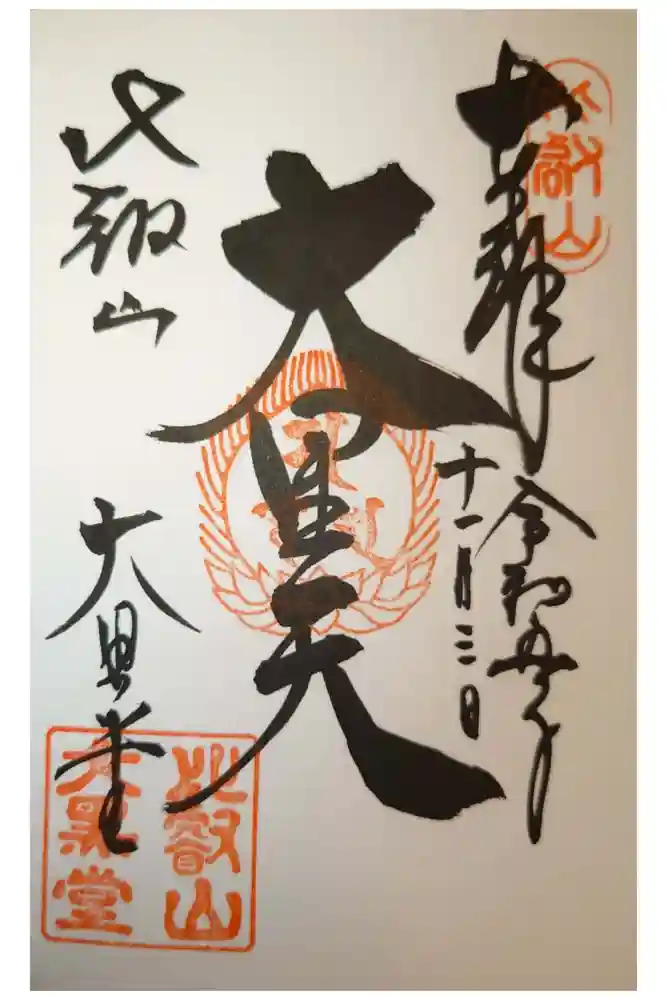 比叡山
奉拝
令和五年
十一月三日
大黒天
比叡山
大黒堂
比叡山
大黒堂